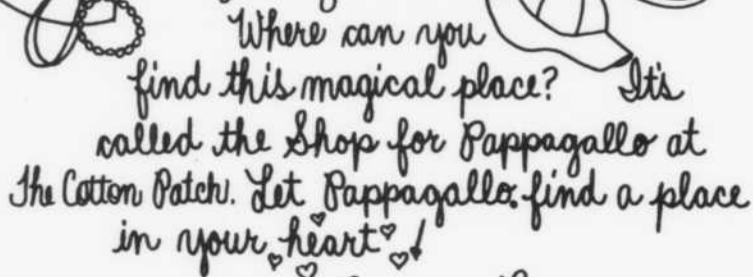 Where can you
find this magical place? It's
called the Shop for Pappagallo at
The Cotton Patch. Let Pappagallo. find a place
in your heart!